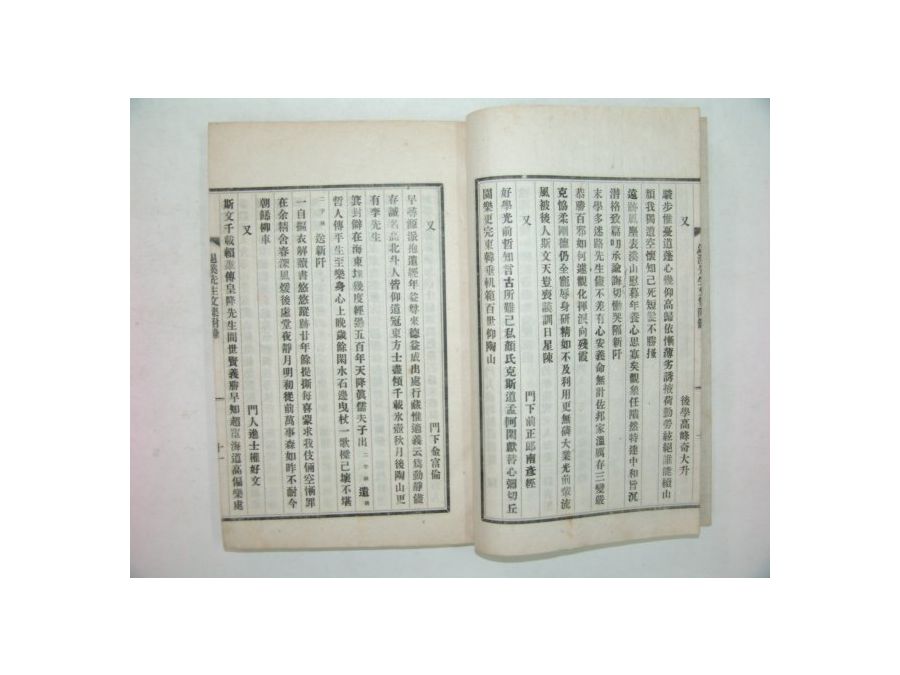 驥步惟憂道蓬心幾仰高歸依慚薄劣誘掖荷勤勞絃絕誰能續山
頹我獨遺空懷知己死短髮不勝搔
又
後學高峰奇大升
遠跡風塵表溪山慰暮年養心思寡矣觀象任階然特達中和旨沉
潛格致篇叨承論誨切慟哭隔新阡
末學多迷路先生儘不差有心安義命無計佐邦家溫厲春三變嚴
恭勝百邪如何遽觀化揮淚向殘霞
克恊柔剛德仍全寵辱身研精如不及利用更無磷大業光前輩流
風被後人斯文天豈喪謨訓日星陳
又
門下前正郎南彥經
好學光前哲知言古所難己私顏氏克斯道孟軻閑獻替心彌切丘
園樂更完東韓垂軌範百世仰陶山
又
門下金富倫
早尋源派抱遺經年益尊來德益成出處行藏惟適義云爲動靜儘
存誠名高北斗人皆仰道冠東方士盡傾千載氷壺秋月後陶山更
有李先生
箕封僻在海東堧幾度經過五百年天降眞儒夫子出
哲人傳平生至樂身心上晚歲餘閑水石邊曳杖一歌樑已壞不堪
送新阡
一自摳衣解讀書悠悠蹤跡廿年餘提撕每喜蒙求我伎倆空慚罪
在余精舍春深風煖後虛堂夜靜月明初從前萬事森如昨不耐今
朝餞柳車
又
門人進士權好文
斯文千載賴退傳皇降先生間世賢義勝早知超宦海道高偏樂處
十一